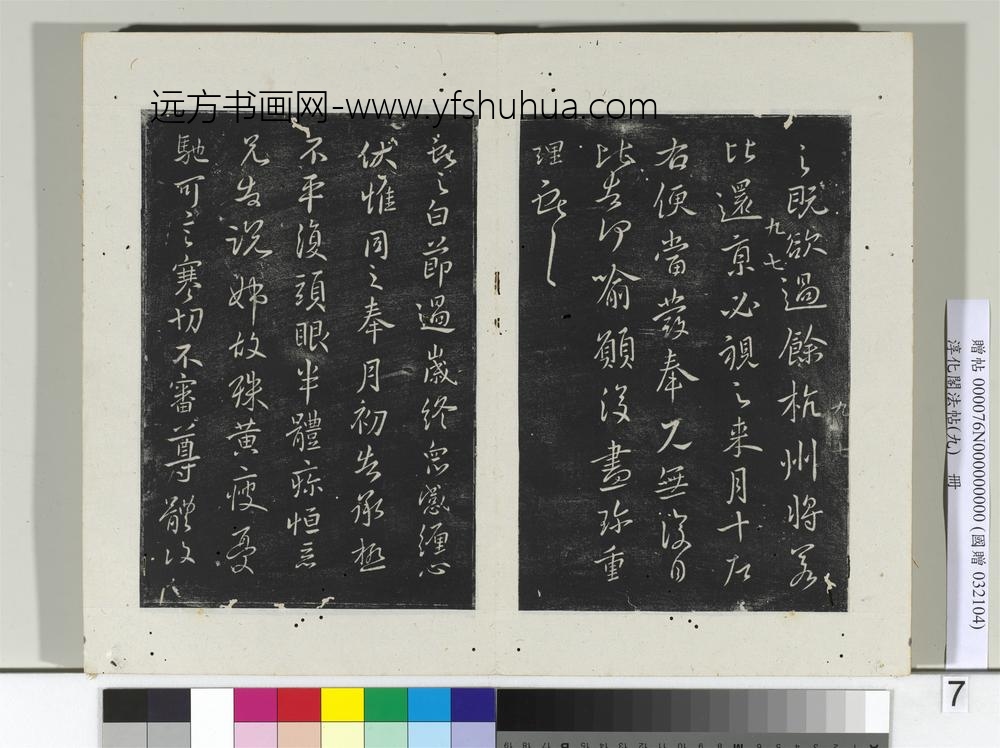 远方书画网-www.yfshuhua.com
之既欲過餘杭州將若
比還京必視之来月十左
右便當發奉見無復日
比告何喻願復盡珍重
理獻
九七
獻之白節過歲終眾感纏心
伏惟同之奉月初告承極
不平復頭眼半體疼恒惡
兄告説姊故殊黄瘦憂
馳可言寒切不審尊體復
贈帖 000076N000000000 (國贈 032104)
淳化閣法帖(九) 冊
7